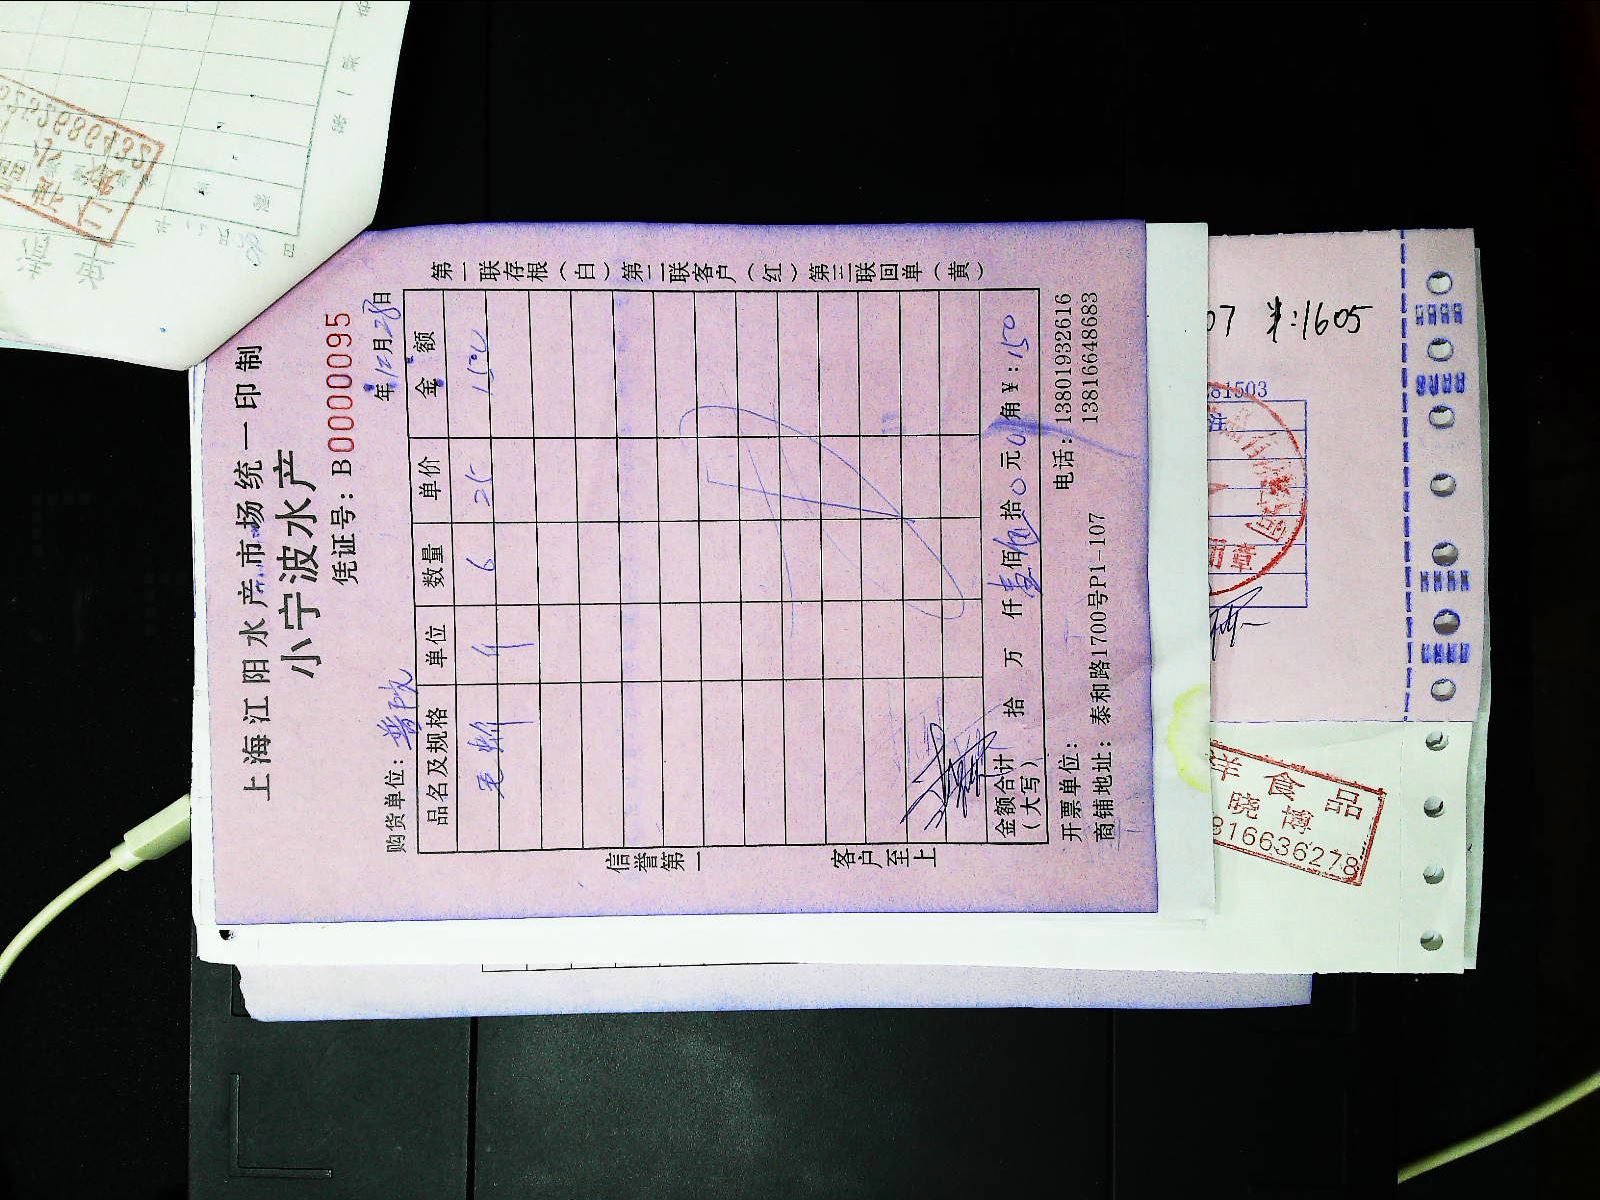 上海江阳水产市场统一印制
小宁波水产
凭证号：B0000095
购货单位：普陀 年12月28日
品名及规格 单位 数量 单价 金额
毛蚶 斤 6 25 150
金额合计（大写） 拾 万 仟壹佰伍拾0元0角￥：150
开票单位：
电话：13801932616
13816648683
商铺地址：泰和路1700号P1-107
第一联存根（白）第二联客户（红）第三联回单（黄）
信誉第一
客户至上
07 半:1605
281503
注
816636278